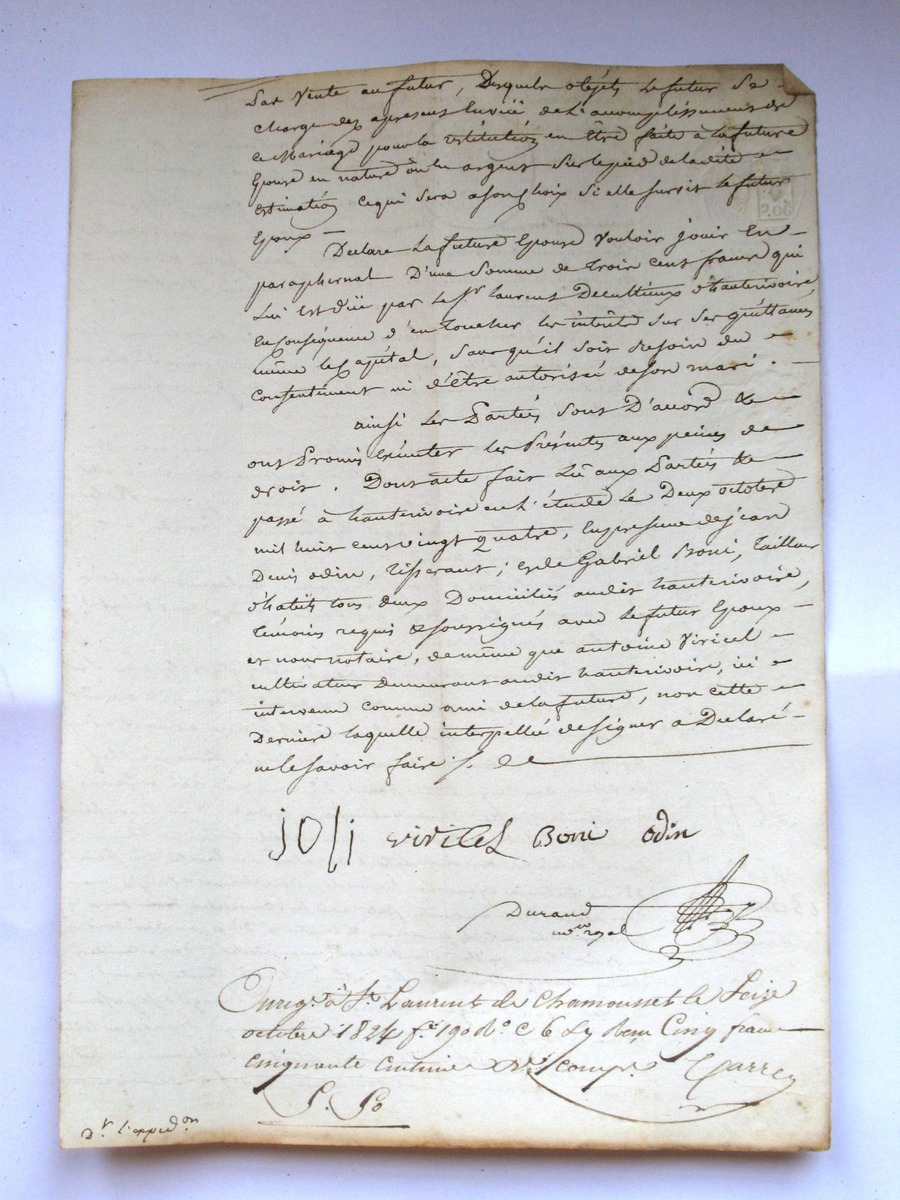 pas vente au futur, Desquels objets le futur se
charge dez apresent en vüe de l'accomplissement de
ce Mariage pour la restitution en être faite à la future
Epouse en nature ou en argent sur le pied de la dite
Estimation ce qui sera a son choix si elle survit le futur
Epoux
2.06
Declare la future Epouse vouloir jouir En
paraphernal D'une somme de trois cents francs qui
lui est düe par le Sr laurent D'hauterivoire,
En conséquence d'en toucher les intérêts sur ses quittances
même le Capital, sans qu'il soit besoin du
consentement ni d'être autorisée de son mari.
ainsi les Parties sont D'accord &
ont Promis Exécuter les Présentes aux peines de
droit. Dont acte fait Lû aux Parties &
passé à hauterivoire en l'étude le Deux octobre
mil huit cent vingt quatre, En presence de jean
Denis odin, Tisserant; et de Gabriel Boni, Tailleur
d'habits tous deux Domiciliés audit hauterivoire,
temoins requis & soussignés avec le futur Epoux
et nous notaire, de même que antoine Viricel
cultivateur demeurant audit hauterivoire, ici
intervenu comme ami de la future, non cette
Derniere laquelle interpellée de signer a Declaré
ne le savoir faire /. de
joli viricel Boni odin
Durand
nore royal
Enregt. à St Laurent de Chamousset le Seize
octobre 1824 fo 190 Ro C 6 Cinq francs
Cinquante Centimes compr.
Dr l'expedon